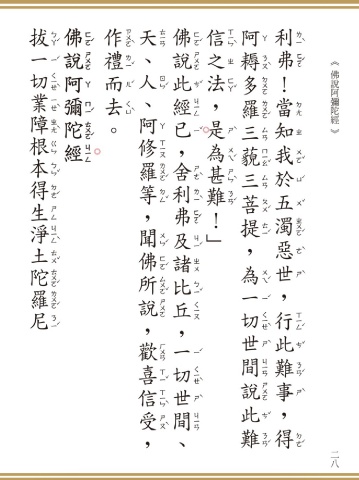 《佛說阿彌陀經》
利弗！當知我於五濁惡世，行此難事，得
阿耨多羅三藐三菩提，為一切世間說此難
信之法，是為甚難！」
佛說此經已，舍利弗及諸比丘，一切世間、
天、人、阿修羅等，聞佛所說，歡喜信受，
作禮而去。
佛說阿彌陀經
拔一切業障根本得生淨土陀羅尼
二八